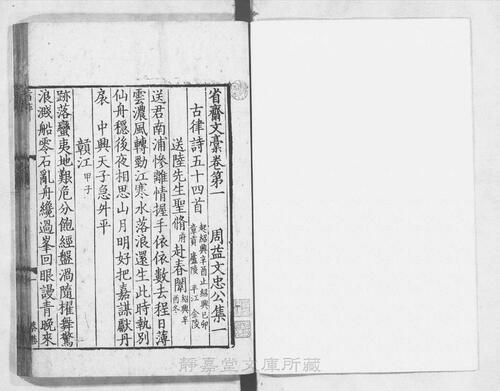 省齋文稾卷第一 周益文忠公集一
古律詩五十四首 起紹興辛酉止紹興己卯
章貢 廬陵 平江 金陵
送陸先生聖脩府赴春闈 紹興辛酉冬
送君南浦慘離情握手依依數去程日薄
雲濃風轉勁江寒水落浪還生此時執別
仙舟穩後夜相思山月明好把嘉謀獻丹
扆 中興天子急升平
贛江 甲子
跡落蠻夷地艱危分飽經盤渦隨櫂舞驚
浪濺船零石亂舟纔過峯回眼謾青晚來
静嘉堂文庫所蔵